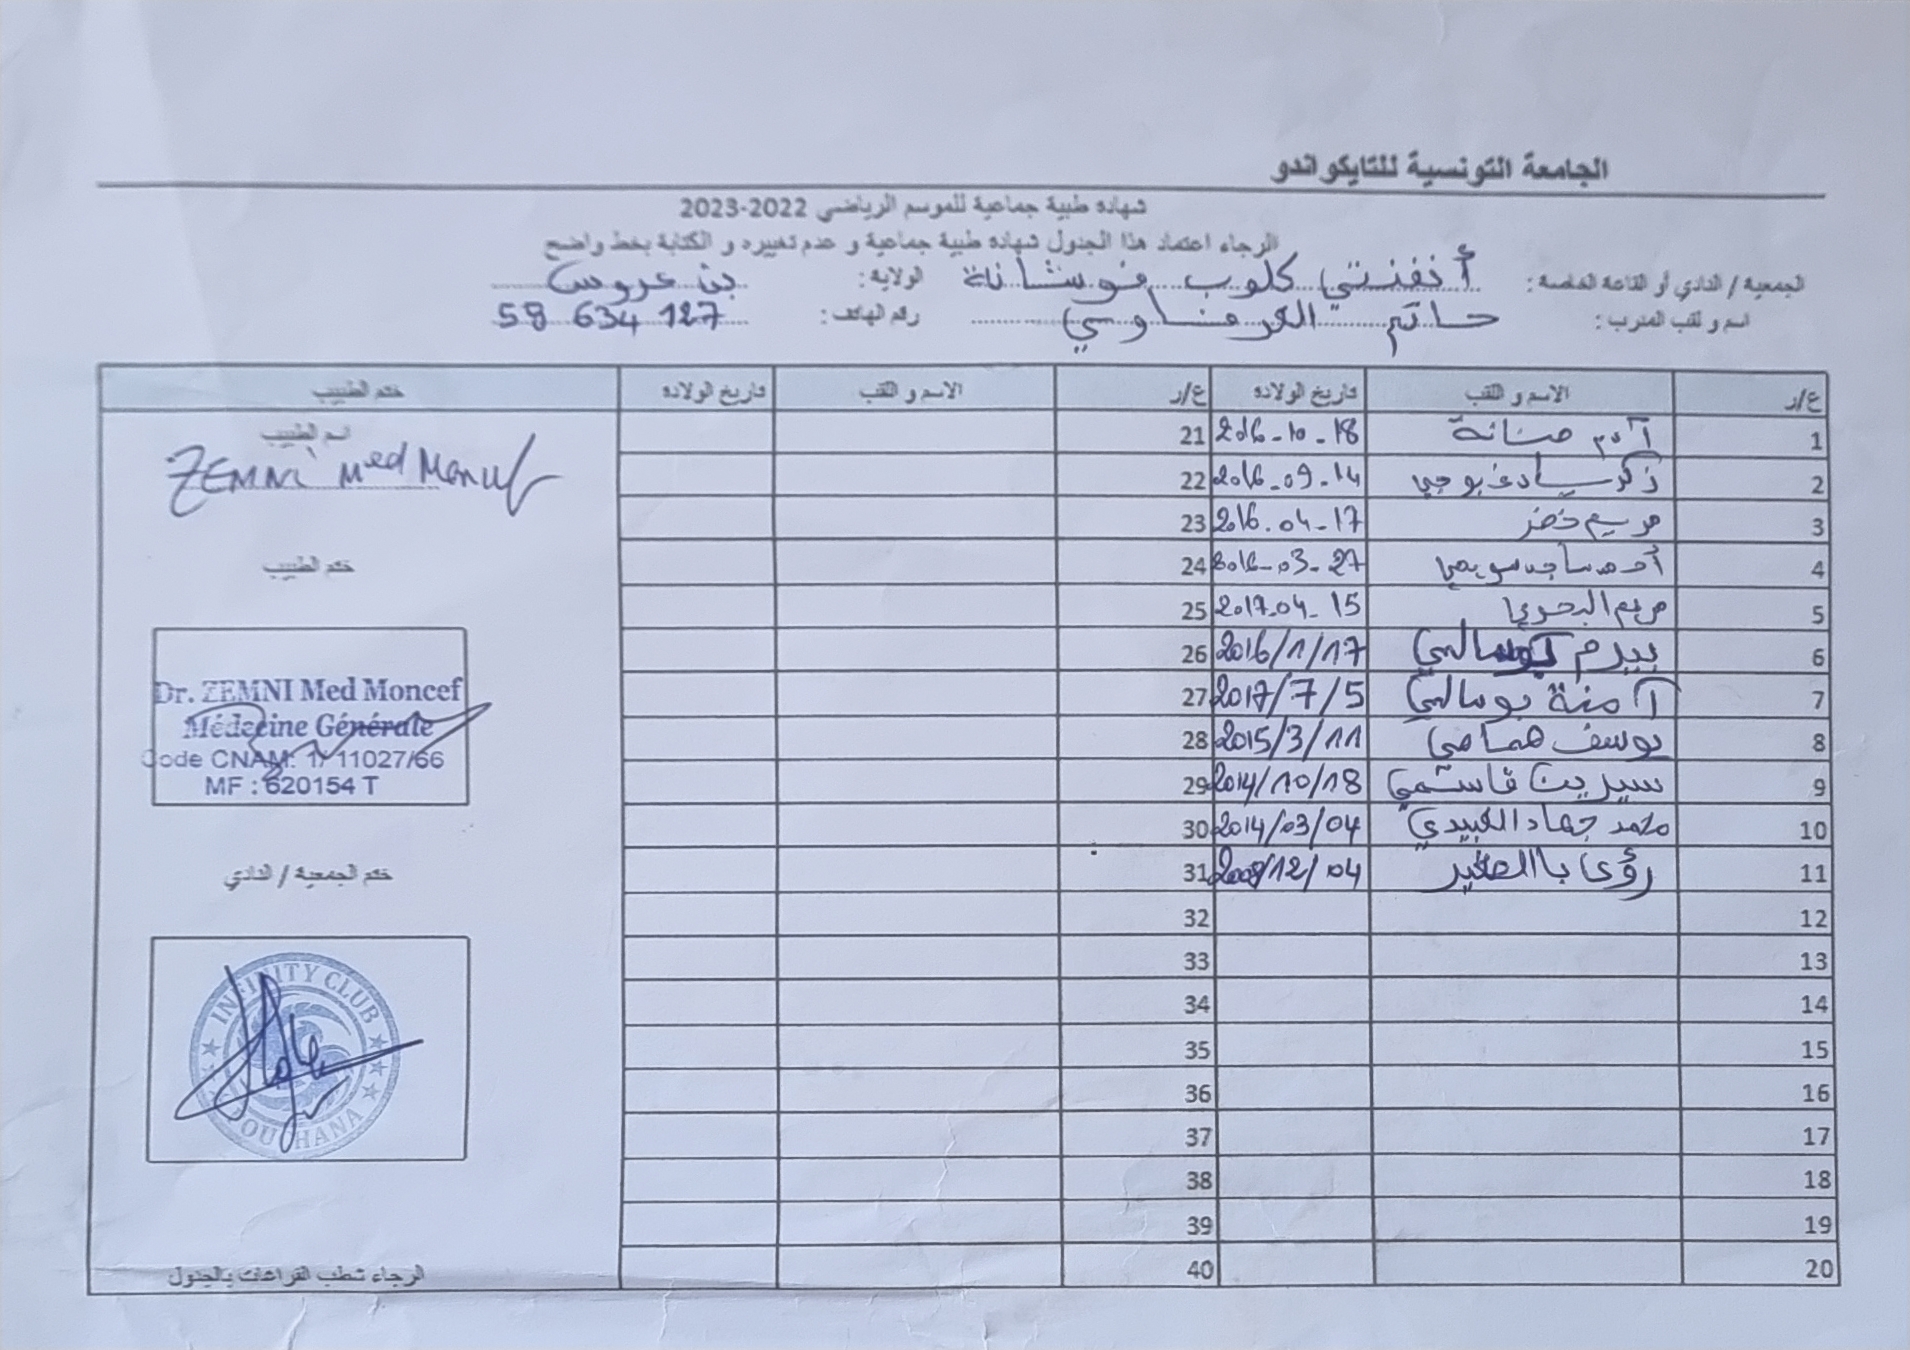 الجامعة التونسية للتايكواندو
شهادة طبية جماعية للموسم الرياضي 2022-2023
الرجاء اعتماد هذا الجدول شهادة طبية جماعية و عدم تغييره و الكتابة بخط واضح
الجمعية / النادي أو القاعة الخاصة : أنفنتي كلوب فوشانة الولاية: بن عروس
اسم و لقب المدرب : حاتم العرفاوي رقم الهاتف : 58 634 127
ع/ر الاسم و اللقب تاريخ الولادة ع/ر الاسم و اللقب تاريخ الولادة ختم الطبيب
1 آدم 2016-10-18 21
2 زكرياء 2016-09-14 22
3 مريم خضر 2016.04-17 23
4 2016-03-27 24
5 مريم البحوري 2017-04-15 25
6 بيرم بوسالمي 2016/1/17 26
7 آمنة بوسالمي 2017/7/5 27
8 يوسف همامي 2015/3/11 28
9 سيرين قاسمي 2014/10/18 29
10 محمد جهاد العبيدي 2014/03/04 30
11 رؤى با الصغير 2008/12/04 31
12 32
13 33
14 34
15 35
16 36
17 37
18 38
19 39
20 40
اسم الطبيب
ZEMNI Med Moncef
ختم الطبيب
Dr. ZEMNI Med Moncef
Médecine Générale
Code CNAM: 1/ 11027/66
MF : 620154 T
ختم الجمعية / النادي
INFINITY CLUB
FOUCHANA
الرجاء شطب الفراغات بالجدول